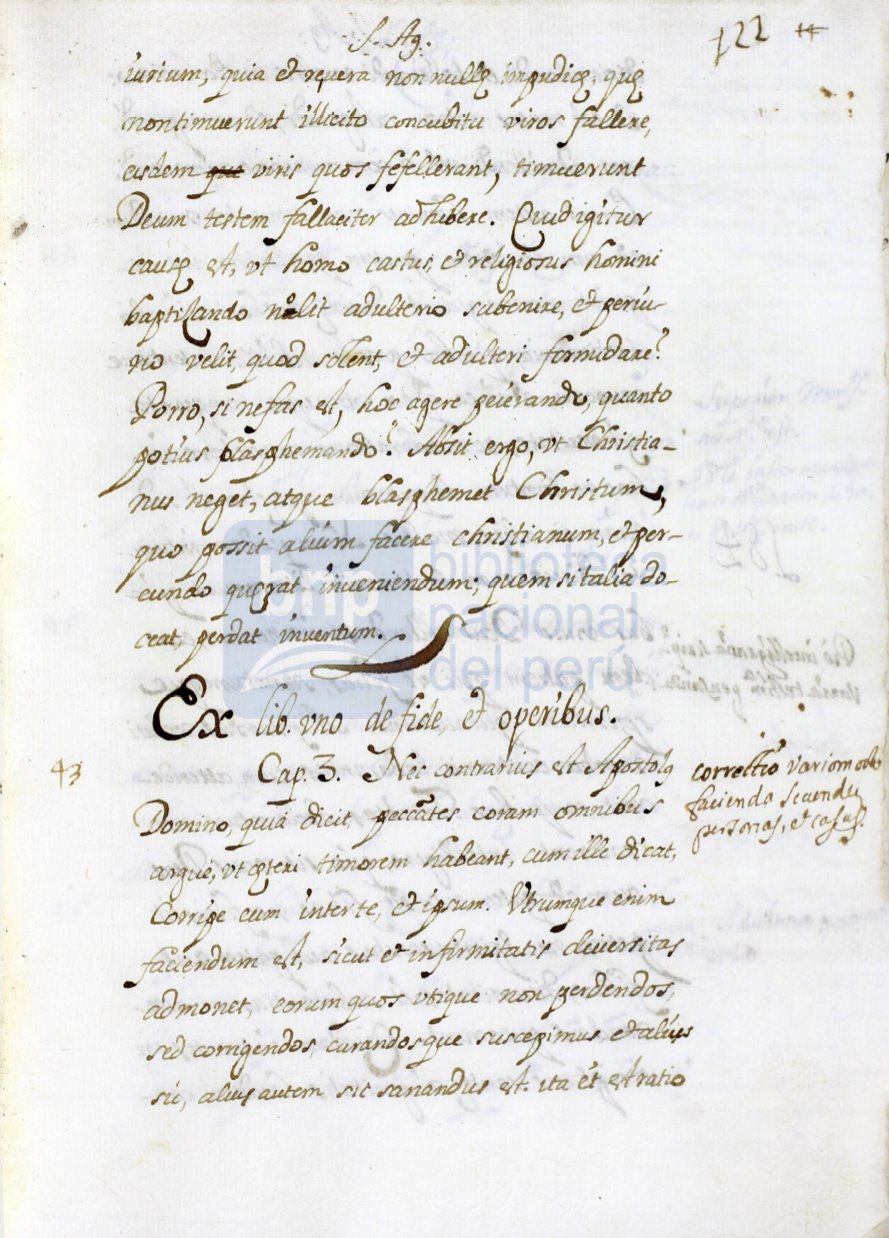 S. Ag.
122
iurium, quia et revera non nullę impudicę, quę
non timuerunt illicito concubitu viros fallere,
eisdem que viris quos fefellerant, timuerunt
Deum testem fallaciter adhibere. Quid igitur
causę est, vt homo castus, et religiosus homini
baptizando nolit adulterio subenire, et periu-
rio velit, quod solent, et adulteri formidare?
Porro, si nefas est, hoc agere peierando, quanto
potius blasphemando? Absit ergo, vt Christia-
nus neget, atque blasphemet Christum,
quo possit alium facere christianum, et per-
eundo quęrat inveniendum, quem si talia do-
ceat, perdat inventum.
bnp biblioteca
nacional
del perú
Ex lib. vno de fide, et operibus.
43
Cap. 3. Nec contrarius est Apostolus
Domino, quia dicit, peccātes coram omnibus
argue, vt cęteri timorem habeant, cum ille dicat,
Corripe eum inter te, et ipsum. Vtrumque enim
faciendum est, sicut et infirmitatis diversitas
admonet, eorum quos vtique non perdendos,
sed corrigendos, curandosque suscepimus, et alius
sic, alius autem sic sanandus est. ita et est ratio
correctio variomode
facienda secundu
personas, et casus.